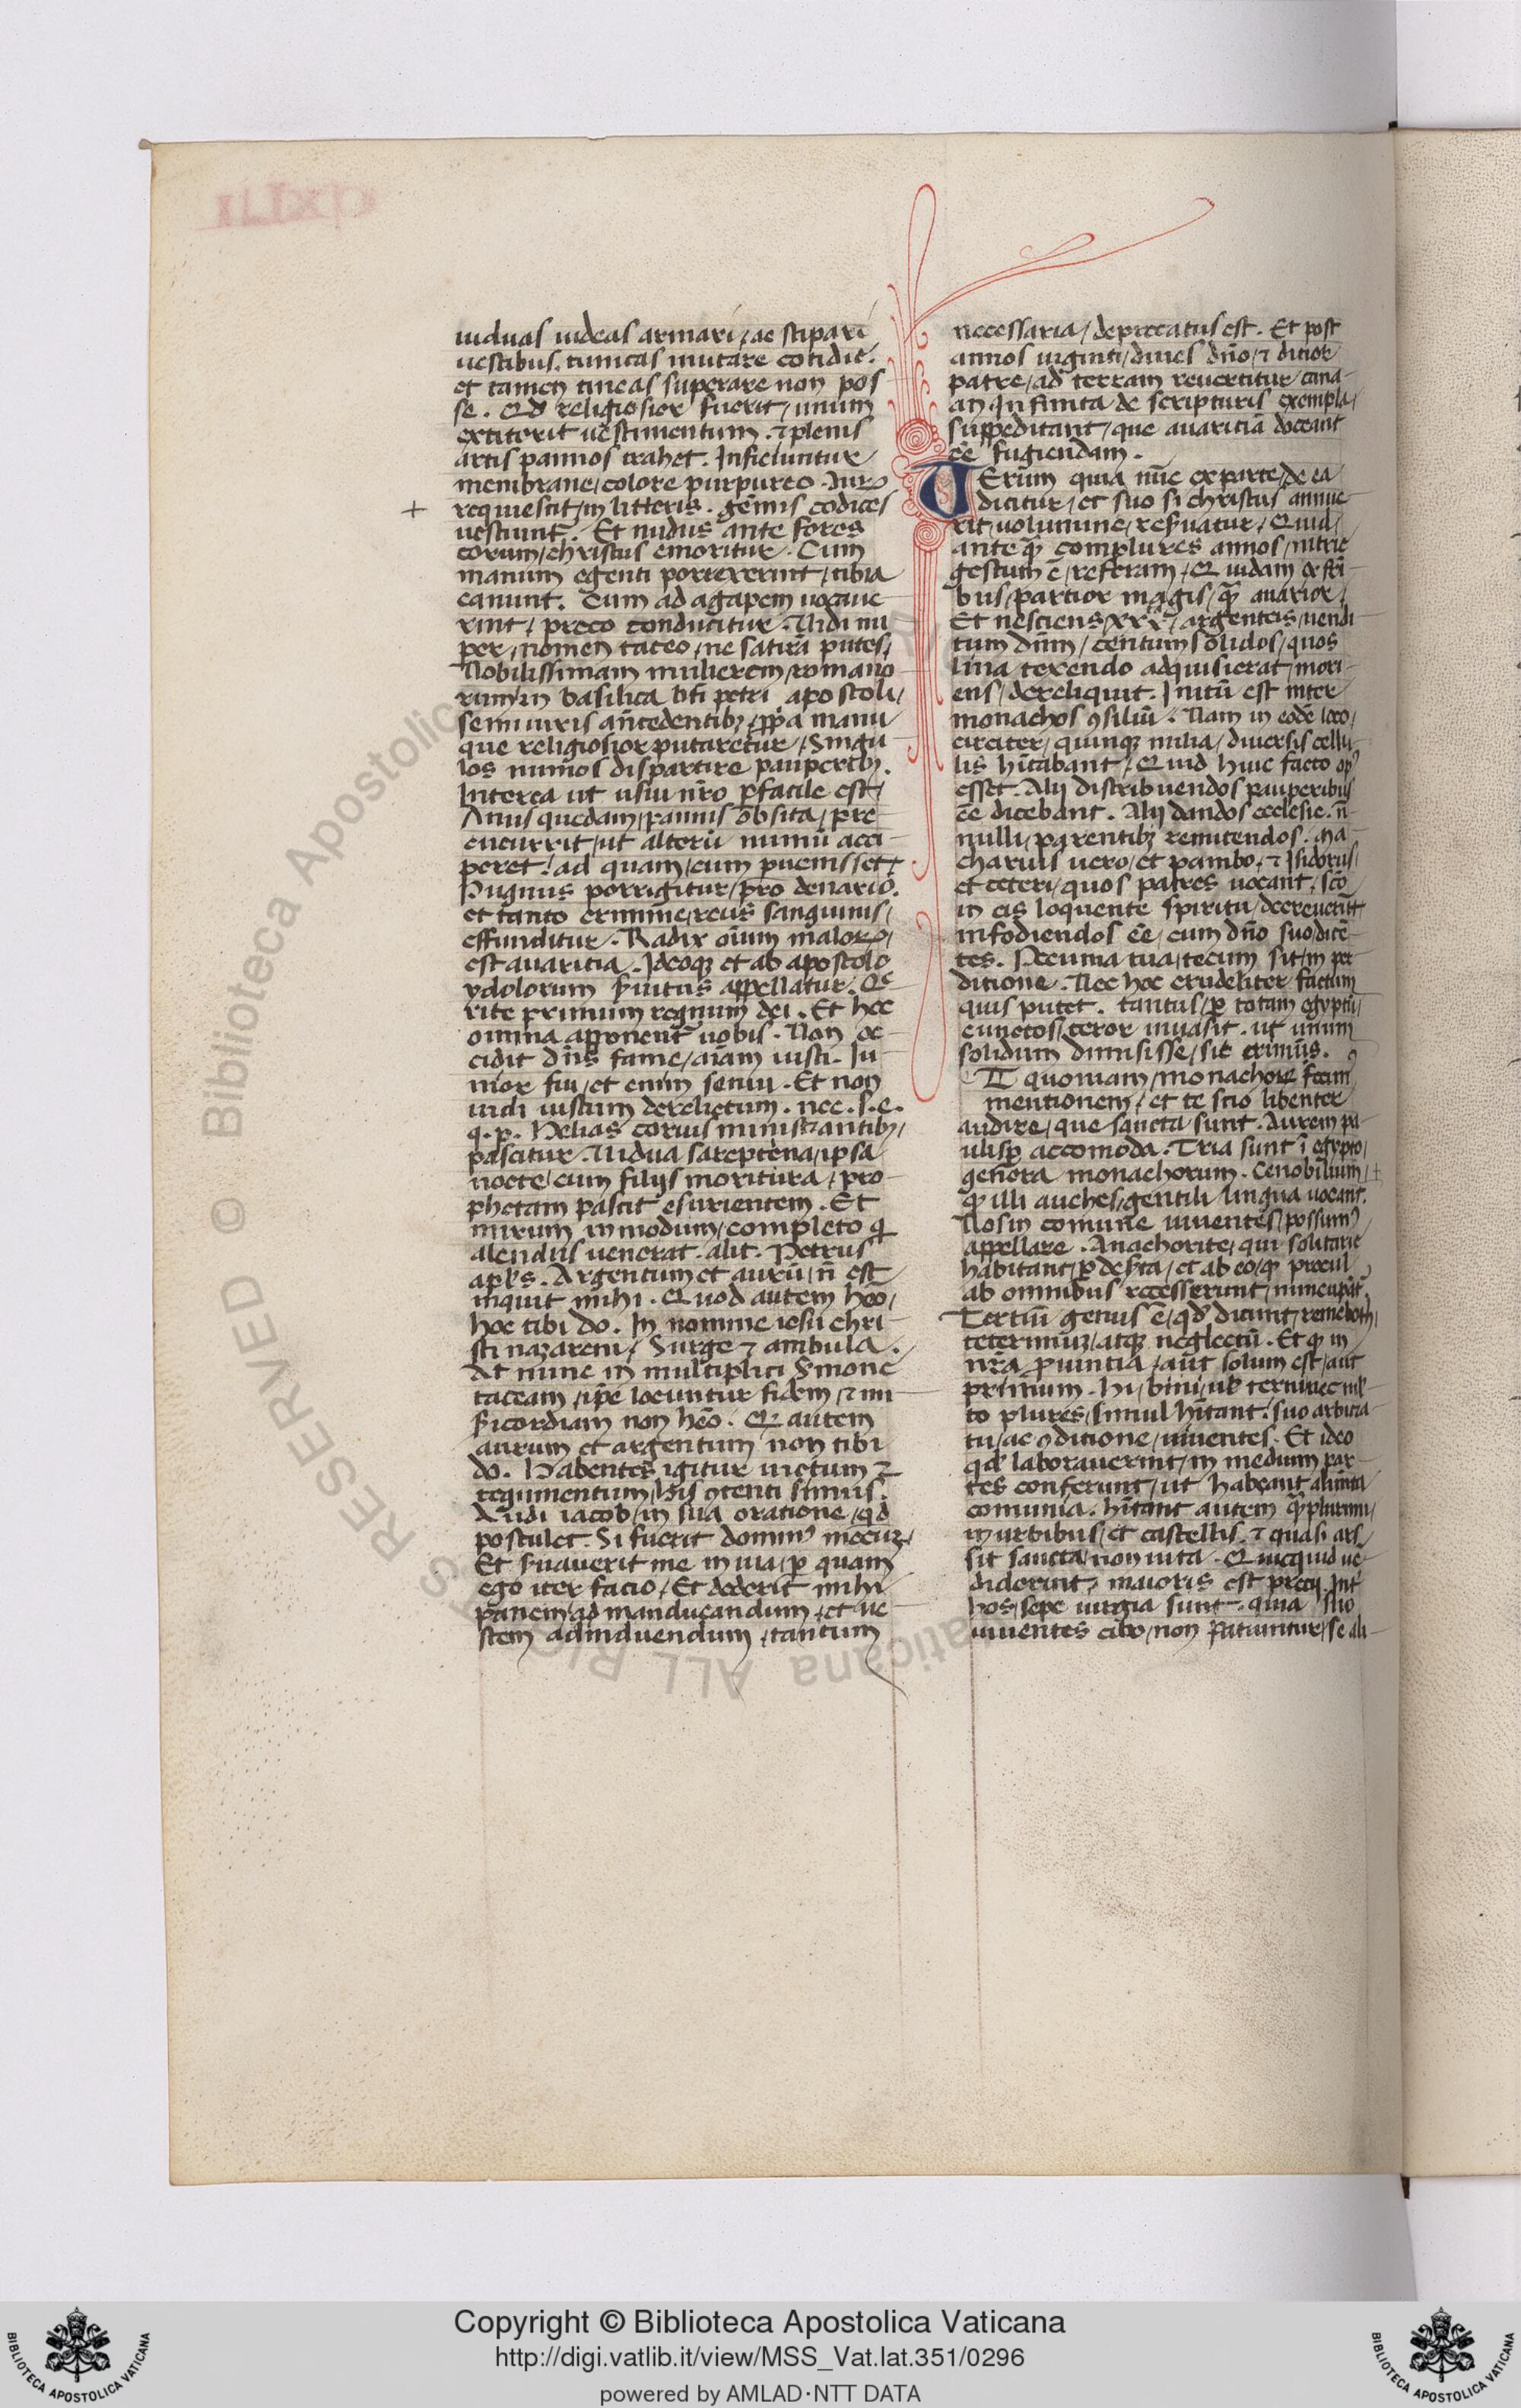 uiduas uideas armari, ac stipari
uestibus. tunicas mutare cotidie.
et tamen tineas superare non pos
se. Q̄ religiosior fuerit, unum
extiterit uestimentum. ⁊ plenis
artis pannos trahet. Inficiuntur
membrane, colore purpureo. Auꝝ
requiescit, in litteris. gēmis codices
uestiunt̄. Et nudus ante fores
eorum, christus emoritur. Cum
manum egenti porrexerint, tibia
canunt. Cum ad agapem uocaue
rint, preco conducitur. Uidi nu
per, nomen taceo, ne satirā putes,
Nobilissimam mulierem, romano
rum, in basilica bt̄i petri apostoli,
semiuiris an̄cedentibꝫ, ꝓp̄a manu
que religiosior putaretur, Singu
los numōs dispartire pauperibꝫ.
Interea ut usu nr̄o ꝑfacile est,
Anus quedam, pannis obsita, pre
cucurrit, ut alterū numū acci
peret. ad quam, cum ꝑuenisset,
Pugnus porrigitur, pro denario.
et tanto crimine, reus sanguinis,
effunditur. Radix oīum maloꝝ,
est auaritia. Ideoqꝫ et ab apostolo
ydolorum s̄uitus appellatur. Q̄
rite primum regnum dei. Et hec
omnia apponent̄ uobis. Non oc
cidit dn̄s fame, aīam iusti. Iu
nior fui, et enim senui. Et non
uidi iustum derelictum. nec. s. e.
q. p. Helias coruis ministrantibꝫ,
pascitur. Uidua sareptena, ipsa
nocte, cum filijs moritura, pro
phetam pascit esurientem. Et
mirum in modum, completo
alendus uenerat. alit. Petrus
apl̄s. Argentum et aurū, n̄ est
inquit mihi. Quod autem hēo,
hoc tibi do. In nomine iesu chri
sti nazareni, Surge ⁊ ambula.
At nunc in multiplici s̄mone
taceam, ip̄e locuntur fidem, ⁊ mi
s̄icordiam non hēo. Q̄ autem
aurum et argentum non tibi
do. Habentes igitur uictum ⁊
tegumentum, his ꝯtenti simus.
Audi iacob, in sua oratione, qd
postulet. Si fuerit dominꝰ mecuꝫ,
Et s̄uauerit me in uia, ꝑ quam
ego iter facio, Et dederit mihi
panem ad manducandum, et ue
stem ad induendum, tantum
necessaria, deprecatus est. Et post
annos uiginti, diues dn̄o, ⁊ ditior
patre, ad terram reuertitur cana
an. infinita de scripturis exempla,
suppeditant, que auaritiā doceant
ēe fugiendam.
UErum quia nūc ex parte, de ea
dicitur, et suo si christus annue
rit, uolumine, res̄uatur, Quid
ante q̄ complures annos, nitrie
gestum ē, referam, Quidam ex fr̄i
bus, partior magis, q̄ auarior,
Et nesciens, xxx, argenteis, uendi
tum dn̄m, centum solidos, quos
lina texendo adquisierat, mori
ens, dereliquit. Initū est inter
monachos ꝯsiliū. Nam in eodē loco,
circiter, quinqꝫ milia, diuersis cellu
lis hītabant, Quid huic facto opꝰ
esset. Alij distribuendos pauperibus
ēe dicebant. Alij dandos ecclesie. n̄
nulli, parentibꝫ remittendos. Ma
charius uero, et pambo, ⁊ Isidorus,
et ceteri, quos patres uocant, sc̄o
in eis loquente spiritu, decreuerūt
infodiendos ēe, cum dn̄o suo, dicē
tes. Pecunia tua, tecum sit, in per
ditione. Nec hoc crudeliter factum
quis putet. tantus, ꝑ totam egyptū,
cunctos, teror inuasit. ut unum
solidum dimisisse, sit crimūs.
ET quoniam, monachoꝝ fecim
mentionem, et te scio libenter
audire, que sancta sunt. Aurem pa
ulisꝑ accomoda. Tria sunt ī egypto,
genera monachorum. Cenobitium,
q̄ illi auches, gentili lingua uocant.
Nos in comune uiuentes, possumꝰ
appellare. Anachorite, qui solitarie
habitant, ꝑ des̄ta, et ab eo, q̄ procul
ab omnibus recesserunt, nuncupāt̄.
Tertiū genus ē, qd̄ dicunt, remeboth,
teterrimuꝫ, atqꝫ neglectū. Et q̄ in
nr̄a ꝓuintia, aut solum est, aut
primum. Hi, bini, ul̄ terni, nec mul
to plures, simul hītant, suo arbitra
tu, ac ꝯditione, uiuentes. Et ideo
qd̄ laborauerint, in medium par
tes conferunt, ut habeant alimta
comunia. hītant autem q̄plurimi,
in urbibus, et castellis, ⁊ quasi ars
sit sancta, non uita. Quicquid ue
diderint, maioris est precij. Int̄
hos, sepe iurgia sunt. quia suo
uiuentes cibo, non patiuntur, se ali
Copyright © Biblioteca Apostolica Vaticana
http://digi.vatlib.it/view/MSS_Vat.lat.351/0296
powered by AMLAD·NTT DATA